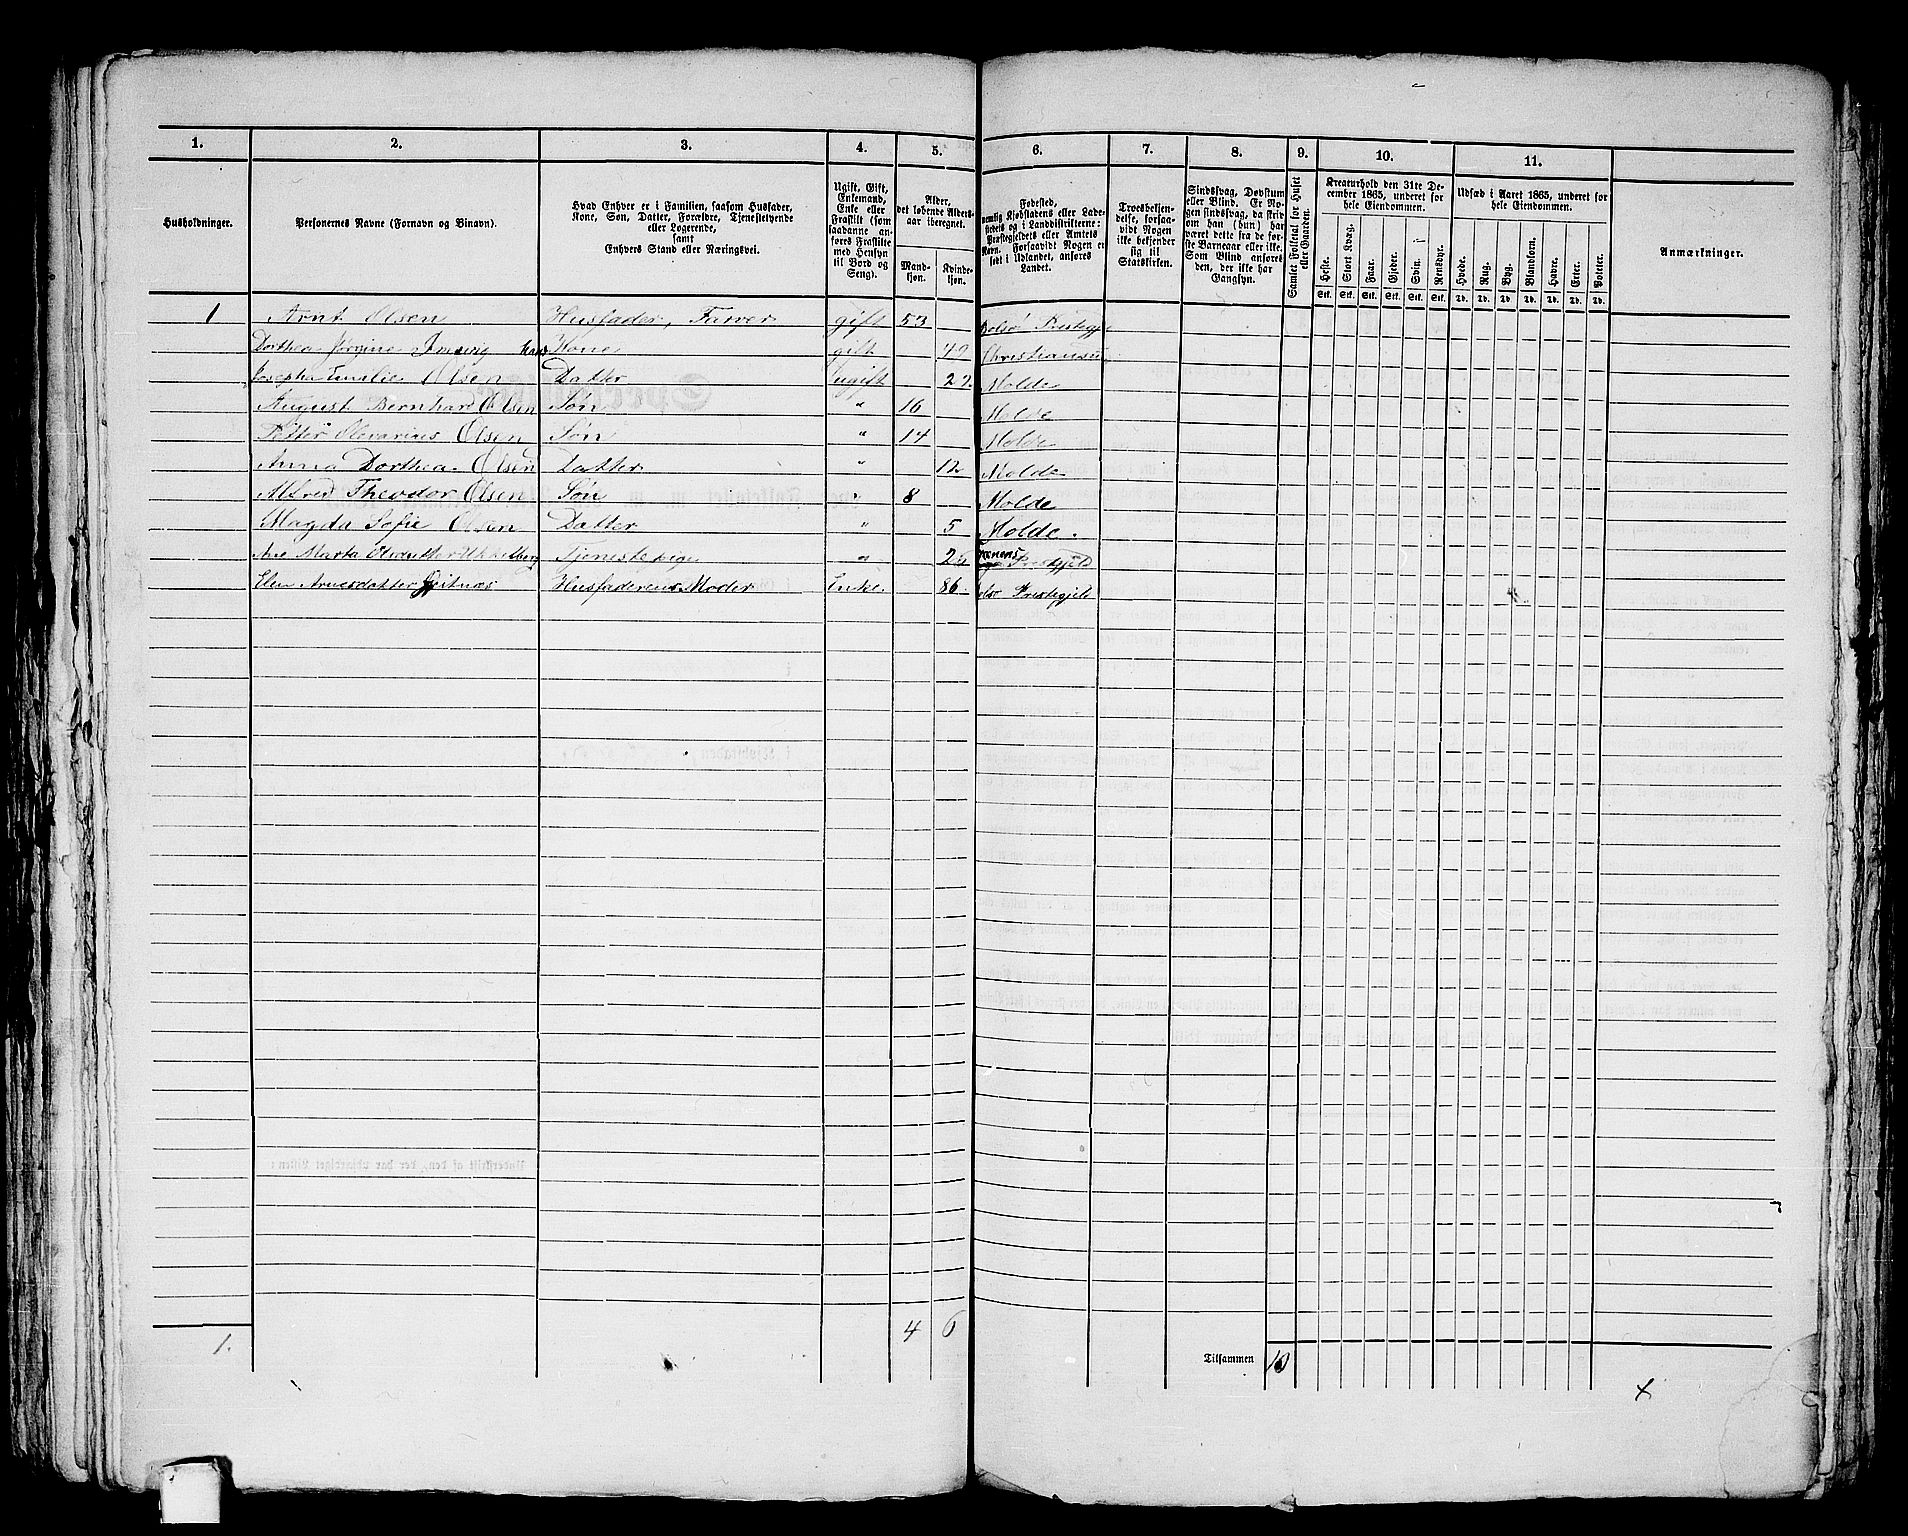 1. 2. 3. 4. 5. 6. 7. 8. 9. 10. 11.
Husholdninger.
Personernes Navne (Fornavn og Binavn).
Hvad Enhver er i Familien, saasom Husfader,
Kone, Søn, Datter, Forældre, Tjenestetyende
eller Logerende,
samt
Enhvers Stand eller Næringsvei.
Ugift, Gift,
Enkemand,
Enke eller
Fraskilt (som
saadanne an-
føres Fraskilte
med Hensyn
til Bord og
Seng).
Alder,
det løbende Alders-
aar iberegnet.
Mand-
kjøn.
Kvinde-
kjøn.
Fødested,
nemlig Kjøbstadens eller Lade-
stedets og i Landdistrikterne:
Præstegjeldets eller Amtets
Navn. Forsaavidt Nogen er
født i Udlandet, anføres
Landet.
Troesbekjen-
delse, forsaa-
vidt Nogen
ikke bekjender
sig til
Statskirken.
Sindssvag, Døvstum
eller Blind. Er No-
gen sindssvag, da skriv
om han (hun) har
været dette fra de før-
ste Barneaar eller ikke.
Som Blind anføres
den, der ikke har
Gangsyn.
Samlet Folketal for Huset
eller Gaarden.
Kreaturhold den 31te De-
cember 1865, underet for
hele Eiendommen.
Heste. Stort Kvæg. Faar. Gjeder. Svin. Rensdyr.
Stk. Stk. Stk. Stk. Stk. Stk.
Udsæd i Aaret 1865, underet for
hele Eiendommen.
Hvede. Rug. Byg. Blandkorn. Havre. Erter. Poteter.
Td. Td. Td. Td. Td. Td. Td.
Anmærkninger.
1 Arnt Olsen Husfader, Farver gift 53 Bolsø Præstegj
Dorthea Jørgine Kone gift 49 Christiansu
Josepha Emilie Olsen Datter ugift 22 Molde
August Bernhar Olsen Søn " 16 Molde
Petter Olevarius Olsen Søn " 14 Molde
Anna Dorthea Olsen Datter " 12 Molde
Alfred Theodor Olsen Søn " 8 Molde
Magda Sofie Olsen Datter " 5 Molde.
Ane Marta Olsdatter Tjenestepige " Prestgjeld
Elen Arnesdatter Gjeitnæs Husfaderens Moder Enke. 86. olsø Prestegjeld
1. 4 6
Tilsammen 10